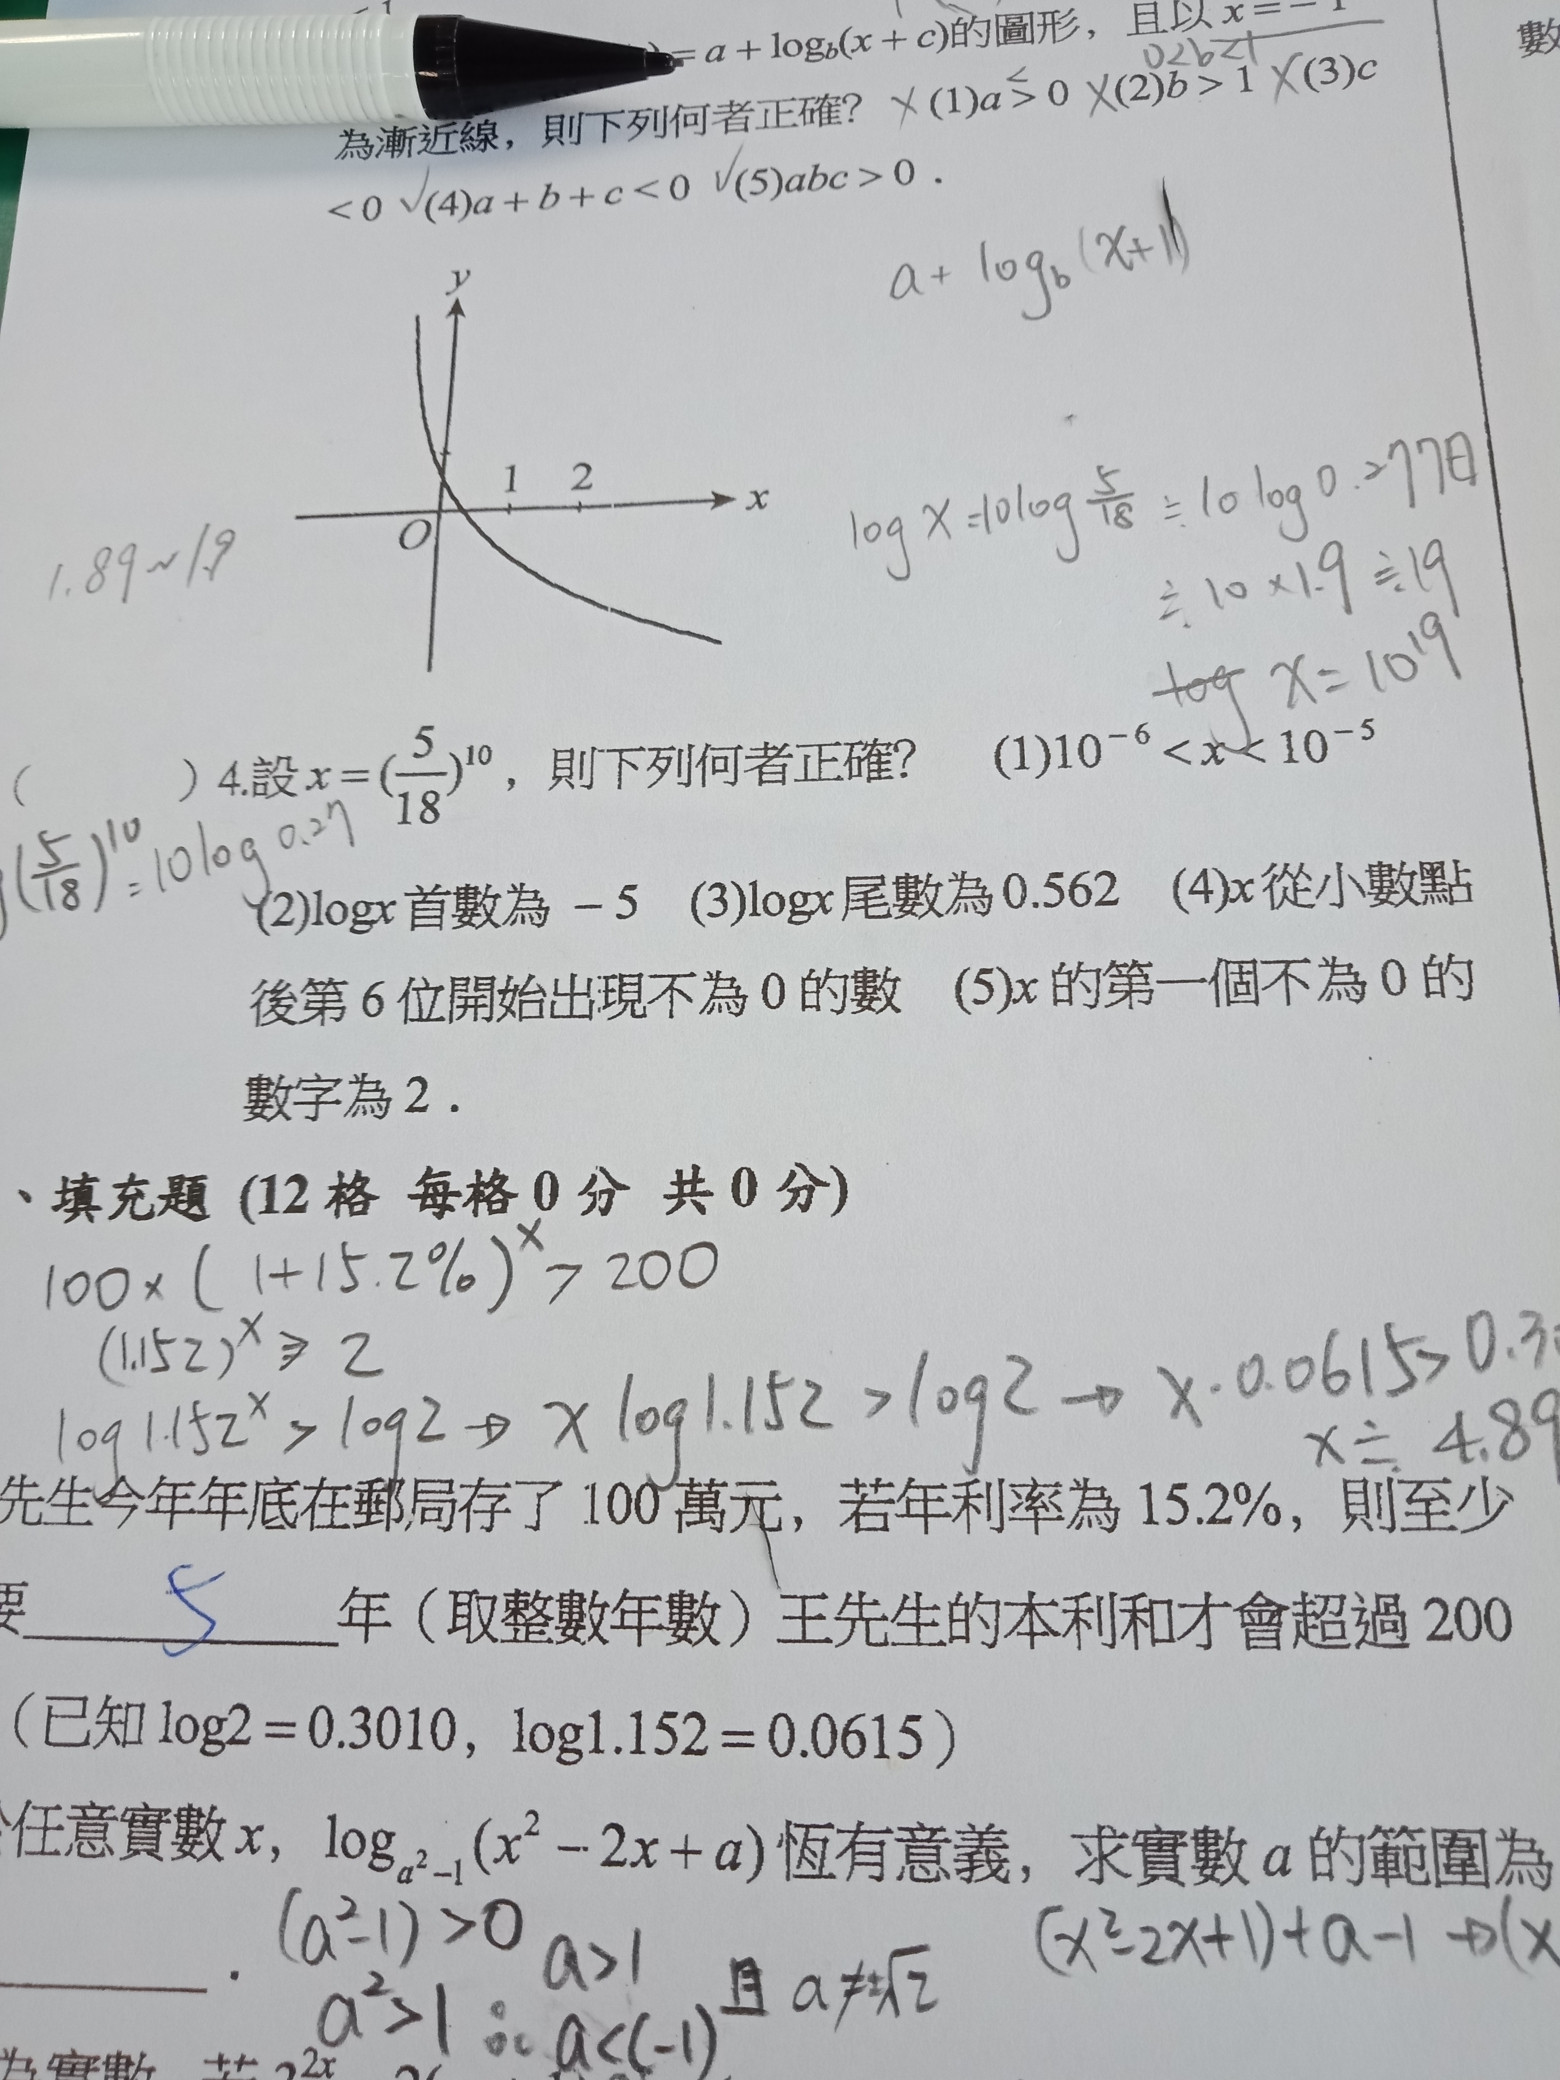 = a + log_b(x + c)的圖形，且以 x = − 1
0<b<1
為漸近線，則下列何者正確？ ×(1)a > 0 ×(2)b > 1 ×(3)c
<
< 0 √(4)a + b + c < 0 √(5)abc > 0．
a + log_b (x+1)
y
1 2 x
O
1.89~1.9
log x = 10 log 5/18 ≒ 10 log 0.277
≒ 10 × 1.9 ≒ 19
log x = 10^19
( ) 4.設 x = (5/18)^10，則下列何者正確？ (1)10^−6 < x < 10^−5
(5/18)^10 = 10 log 0.27
(2)logx 首數為 − 5 (3)logx 尾數為 0.562 (4)x 從小數點
後第 6 位開始出現不為 0 的數 (5)x 的第一個不為 0 的
數字為 2．
、填充題 (12 格 每格 0 分 共 0 分)
100 × ( 1+15.2% )^x > 200
(1.152)^x ⩾ 2
log 1.152^x > log 2 → x log 1.152 > log 2 → x · 0.0615 > 0.3
x ≒ 4.89
先生今年年底在郵局存了 100 萬元，若年利率為 15.2%，則至少
要 5 年（取整數年數）王先生的本利和才會超過 200
（已知 log2 = 0.3010，log1.152 = 0.0615）
任意實數 x，log_{a²−1} (x² − 2x + a) 恆有意義，求實數 a 的範圍為
．
(a²−1) > 0 a>1 且 a ≠ ±√2 (x²−2x+1)+a−1 → (x
a² > 1 ∴ a<(−1)
為實數，若 2^{2x}